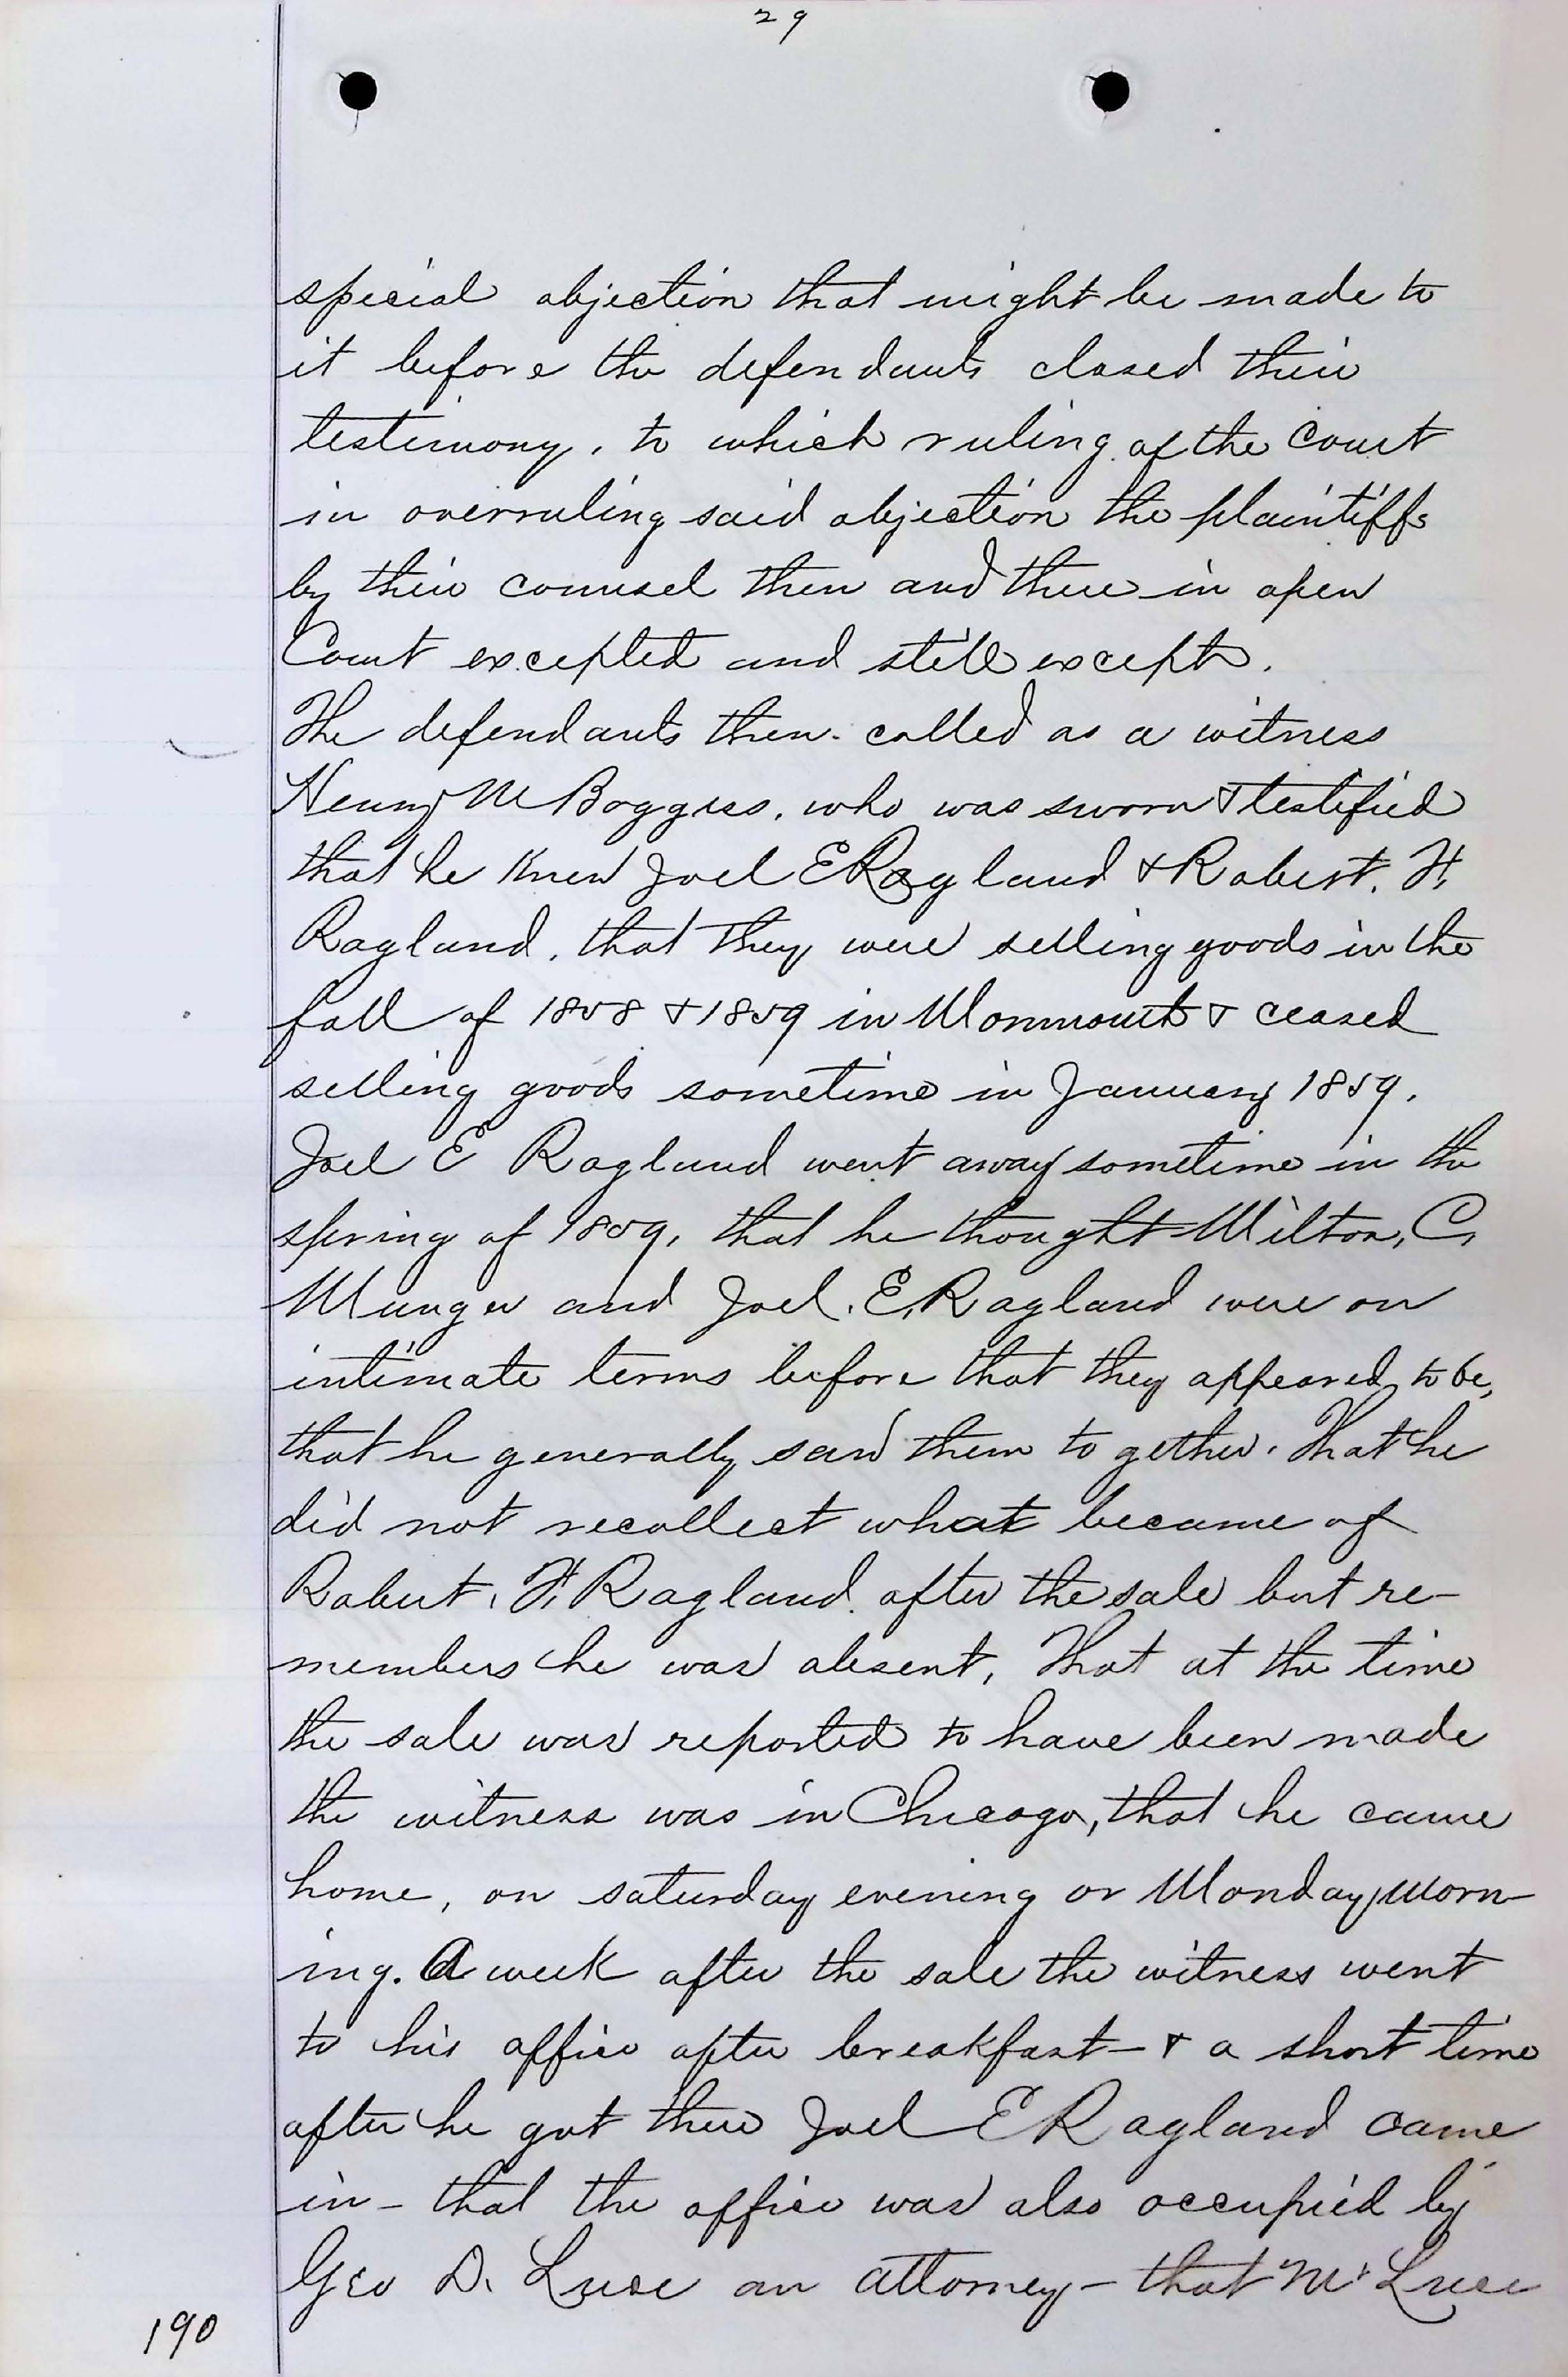 29
special objection that might be made to
it before the defendants closed their
testimony, to which ruling of the Court
in overruling said objection the plaintiffs
by their counsel then and there in open
Court excepted and still except.
The defendants then called as a witness
Henry M Boggess, who was sworn & testified
that he knew Joel E Ragland & Robert. F.
Ragland, that they were selling goods in the
fall of 1858 & 1859 in Monmouth & ceased
selling goods sometime in January 1859.
Joel E Ragland went away sometime in the
spring of 1859, that he thought Milton, C,
Munger and Joel. E, Ragland were on
intimate terms before that they appeared to be,
that he generally saw them to gether. That he
did not recollect what became of
Robert, F, Ragland after the sale but re-
members he was absent, That at the time
the sale was reported to have been made
the witness was in Chicago, that he came
home, on saturday evening or Monday morn-
ing. A week after the sale the witness went
to his office after breakfast - & a short time
after he got there Joel E Ragland came
in - that the office was also occupied by
Geo D. Luce an attorney - that Mr Luce
190